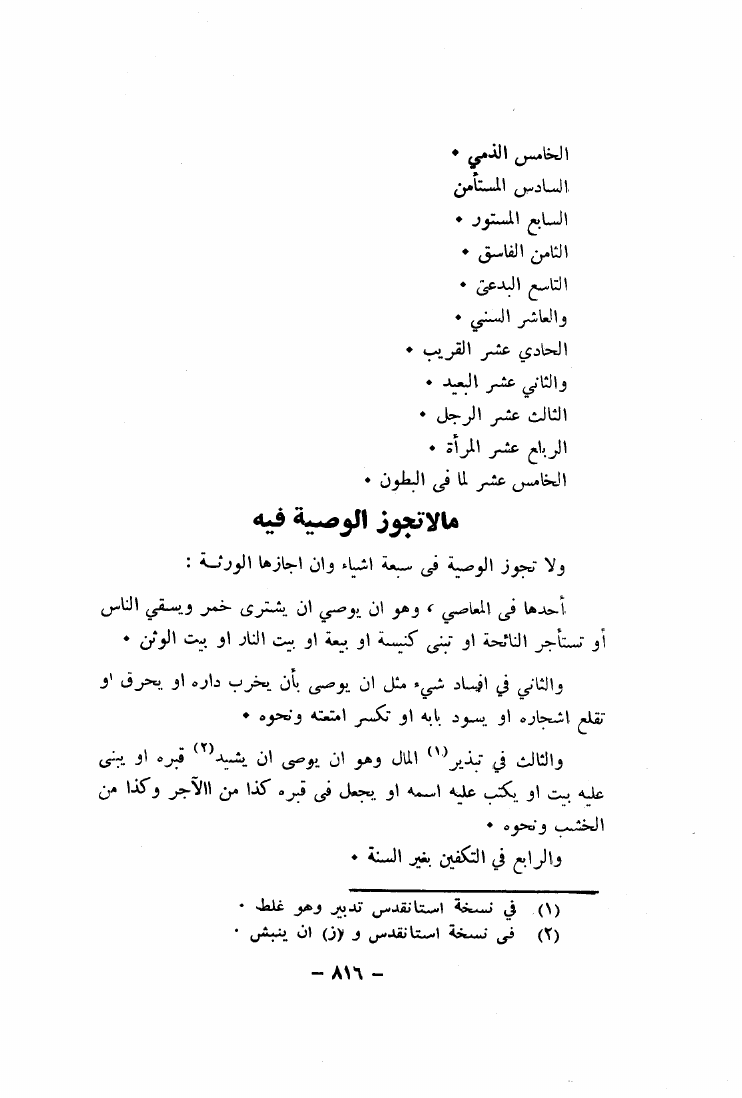 الخامس الذمي ٠
السادس المستأمن
السابع المستور ٠
الثامن الفاسق ٠
التاسع البدعى ٠
والعاشر السني ٠
الحادي عشر القريب ٠
والثاني عشر البعيد ٠
الثالث عشر الرجل ٠
الرابع عشر المرأة ٠
الخامس عشر لما فى البطون ٠
مالاتجوز الوصية فيه
ولا تجوز الوصية فى سبعة اشياء وان اجازها الورثة :
أحدها فى المعاصي ، وهو ان يوصي ان يشترى خمر ويسقي الناس
أو تستأجر النائحة او تبنى كنيسة او بيعة او بيت النار او بيت الوثن ٠
والثاني في افساد شيء مثل ان يوصى بأن يخرب داره او يحرق او
تقلع اشجاره او يسود بابه او تكسر امتعته ونحوه ٠
والثالث في تبذير(١) المال وهو ان يوصى ان يشيد(٢) قبره او يبنى
عليه بيت او يكتب عليه اسمه او يجعل فى قبره كذا من االآجر وكذا من
الخشب ونحوه ٠
والرابع في التكفين بغير السنة ٠
(١) في نسخة استانقدس تدبير وهو غلط ٠
(٢) فى نسخة استانقدس و (ز) ان ينبش ٠
– ٨١٦ –